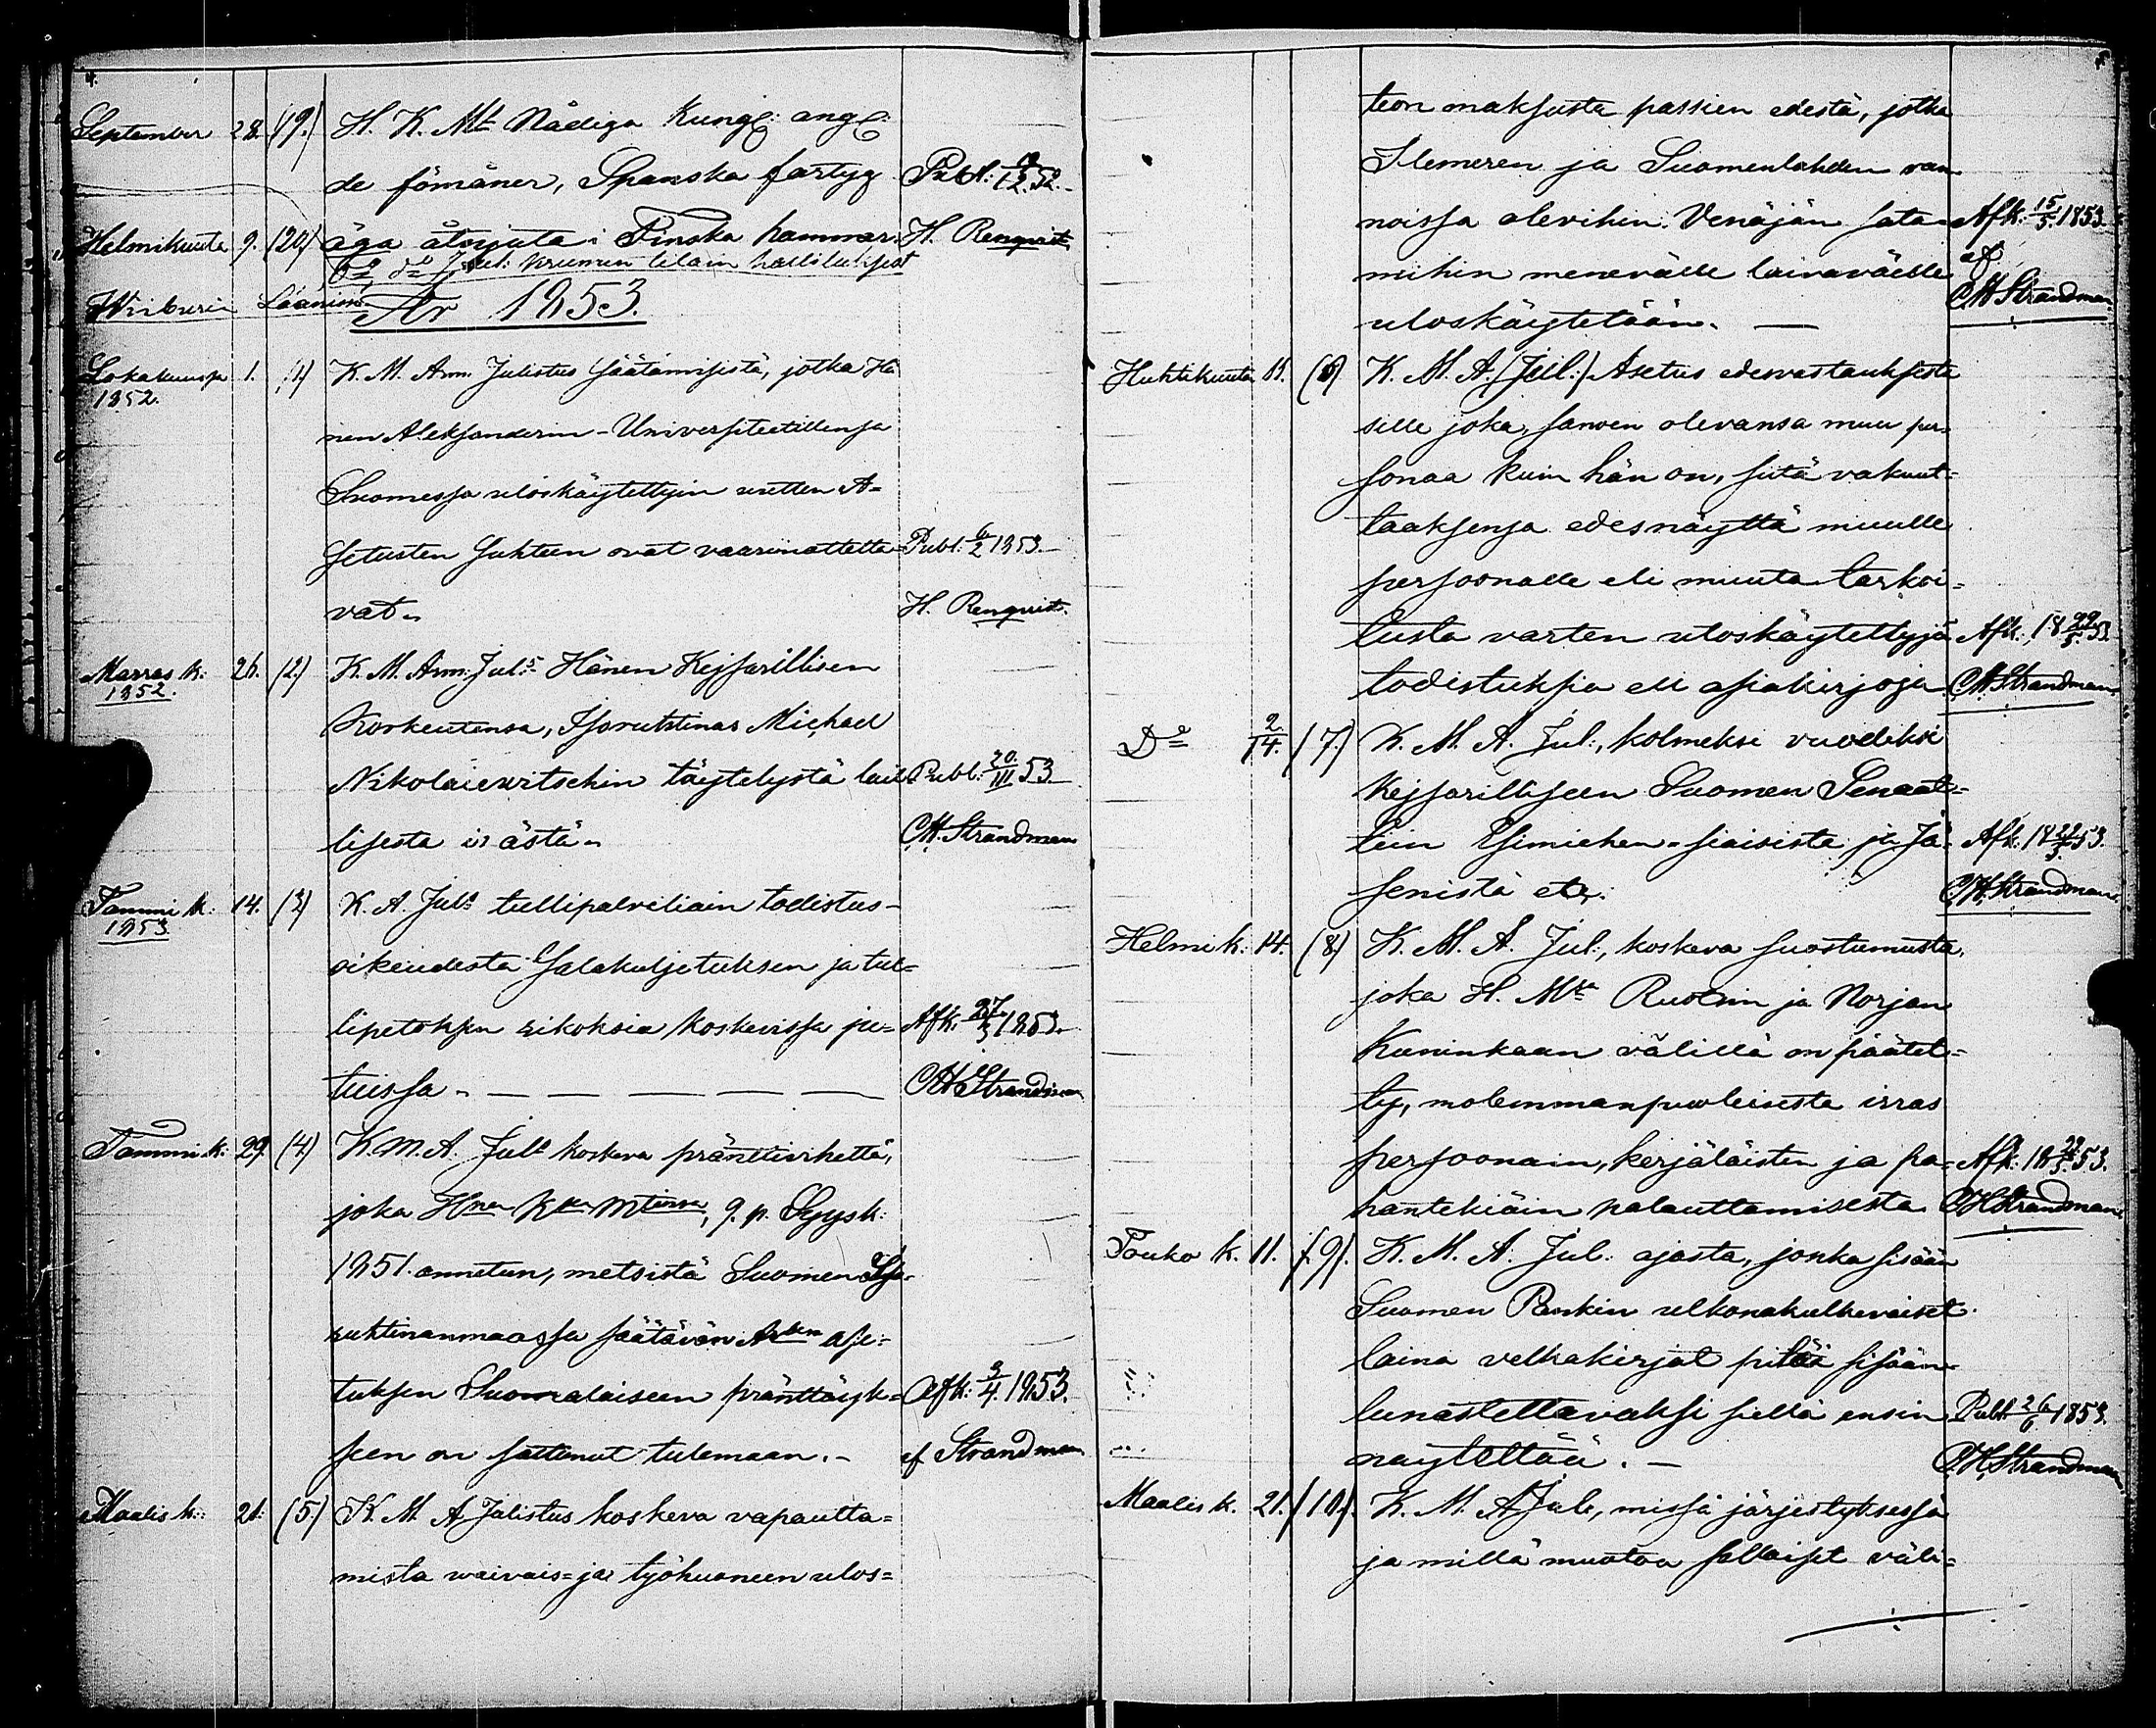 4.
September 28. (19.) H. K. Mt Nådiga Kungg: angg:
de förmåner, Spanska fartyg Publ. 19/12. 52.
Helmikuuta 9. (20) äga åtnjuta i Finska hamnar. H. Renqvist.
do do Jul: kruunun tilain
Wiiburin Läänissä
År 1853.
Lokakuussa 1. (1) K. M. Arm. Julistus säätämisistä, jotka Hä
1852.
nen Aleksanderin-Universiteetillensa
Suomessa uloskäytettyin uutten A=
setusten suhteen ovat vaarinotetta- Publ. 6/2 1853.
vat. H. Renqvist.
Marras k: 26. (2.) K. M. Arm: Juls Hänen Kejsarillisen
1852.
Korkeutensa, Isoruhtinas Michael
Nikolaiewitschin täytetystä lail Publ. 20./III 53
lisesta iästä. C.H. Strandman
Tammi k. 14. (3) K. A. Juls tullipalveliain todistus-
1853.
oikeudesta Salakuljetuksen ja tul=
lipetoksen rikoksia koskevissa ju= Afk. 27/3 1853.
tuissa. C H Strandman
Tammi k: 29. (4) K. M. A. Juls koskeva pränttivirhettä,
joka Hnen Kken Mtinsa, 9. p. Syysk:
1851. annetun, metsistä Suomen Iso-
ruhtinanmaassa säätävän Arken ase=
tuksen Suomalaiseen pränttäyk= Afk: 3/4. 1853.
seen on sattunut tulemaan. af Strandman
Maalis k: 21. (5.) K. M. A Julistus koskeva vapautta=
mista waivais= ja työhuoneen ulos=
5
teon maksusta passien edestä, jotka
Itemeren ja Suomenlahden ran
noissa olevihin Venäjän sata- Afk: 15/5. 1853
mihin menevälle laivaväelle af
uloskäytetään. C H Strandman
Huhtikuuta 11. (6) K. M. A. (Jul.) Asetus edesvastauksesta
sille joka, sanoen olevansa muu per=
sonaa kuin hän on, sitä vakuut=
taaksensa edesnäyttä muulle
persoonalle eli muuta tarkoi=
tusta varten uloskäytettyjä Afk. 18 22/5. 53
todistuksia eli asiakirjoja C H Strandman.
Do 2/14. (7.) K. M. A. Jul:, kolmeksi vuodeksi
Kejsarilliseen Suomen Senaat=
tiin Esimiehen-siaisista ja Jä- Afk. 18 22/5. 53.
senistä etc. C. H. Strandman.
Helmi k: 14. (8) K. M. A. Jul:, koskeva suostumusta,
joka H. Mtn Ruotsin ja Norjan
Kuninkaan välillä on päätet=
ty, molemmanpuoleisesta irras
persoonain, kerjäläisten ja pa= Afk: 18 22/5. 53.
hantekiäin palauttamisesta C H Strandman.
Touko k. 11. (9). K. M. A. Jul: ajasta, jonka sisään
Suomen Pankin ulkonakulkevaiset
laina velkakirjat pitää sisään-
lunastettavaksi siellä ensin Publ. 26/6 1853.
näytettää. C. H. Strandman
Maalis k. 21. (10). K. M. A Jul:, missä järjestyksessä
ja millä muotoa sellaiset väli=